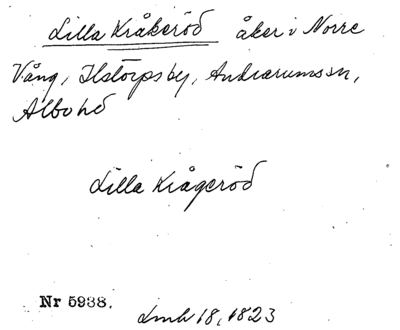 Lilla Kråkeröd åker i Norre
Vång, Ilstorps by, Andrarums sn,
Albo hd
Lilla Krågeröd
Nr 5938.
Lmh 18, 1823